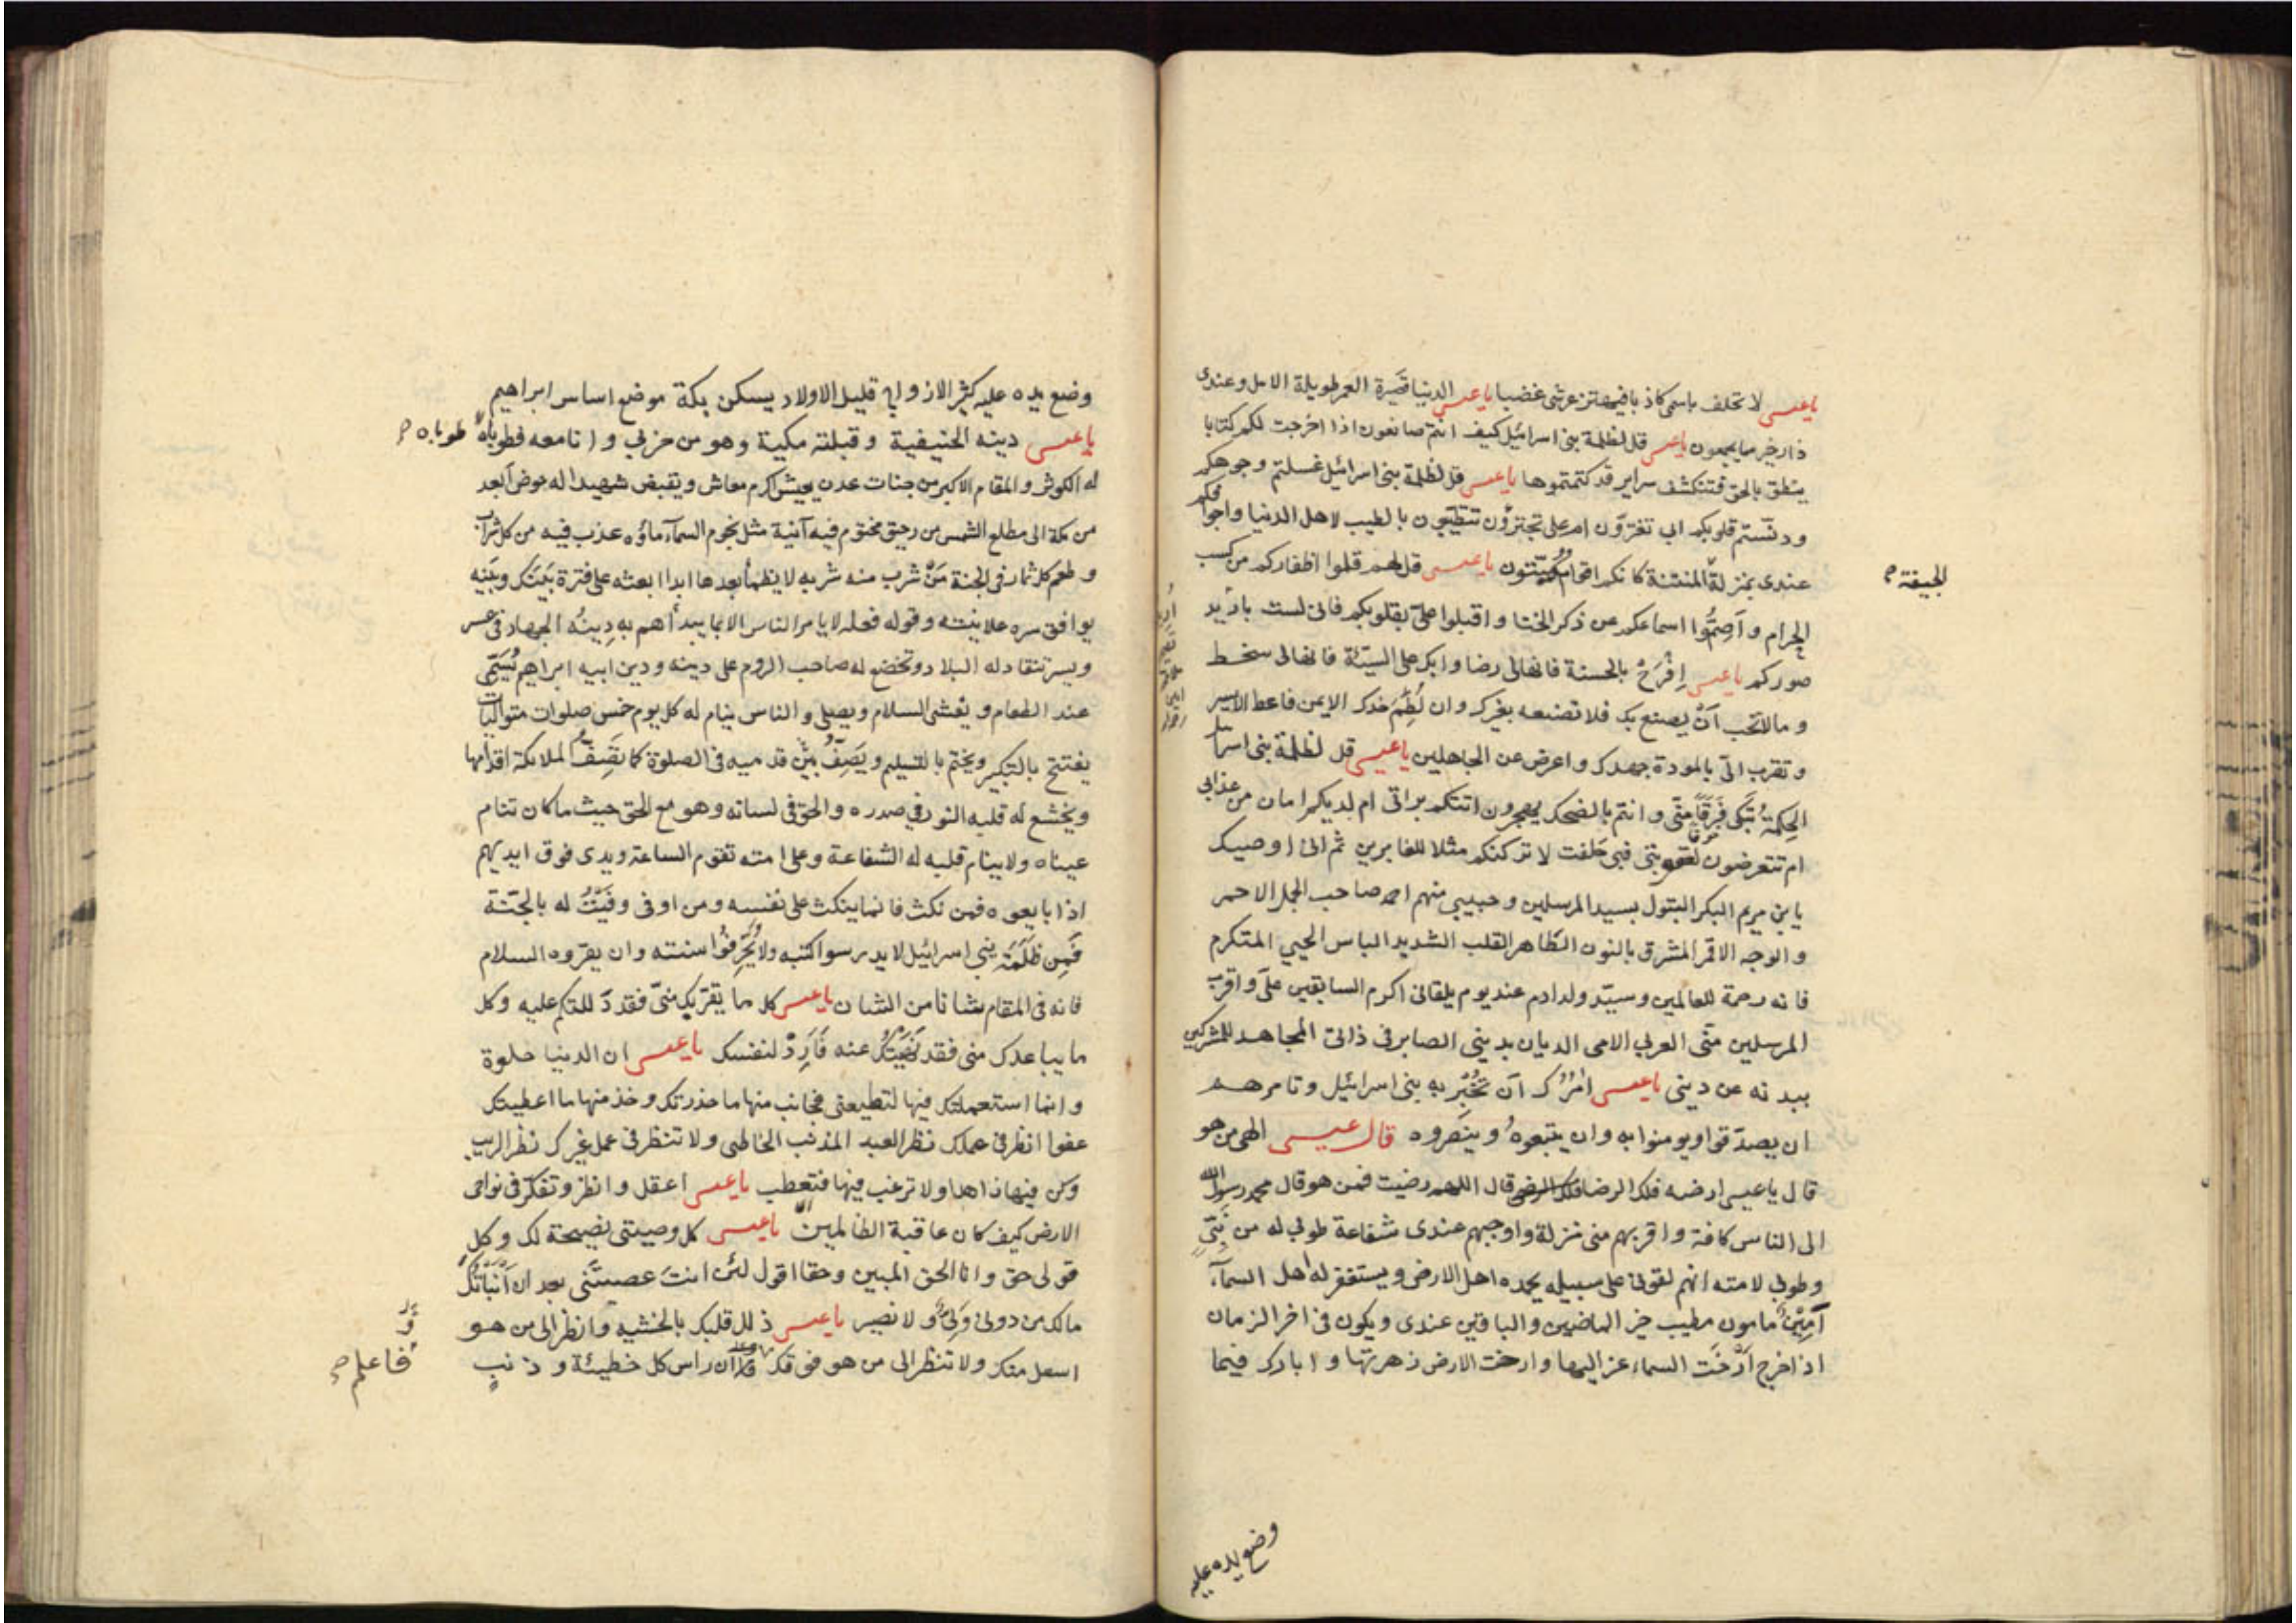 يا عيسى لا تحلف باسمى كاذبا فيهتز عرشى غضبا يا عيسى الدنيا قصيرة العمر طويلة الامل وعندى
دار خير مما يجمعون يا عيسى قل لظلمة بنى اسرائيل كيف انتم صانعون اذا اخرجت لكم كتابا
ينطق بالحق فتنكشف سراير قد كتمتموها يا عيسى قل لظلمة بنى اسرائيل غسلتم وجوهكم
ودنّستم قلوبكم ابى تغترّون ام على تجترؤن تتطيّبون بالطيب لاهل الدنيا واجوافكم
عندى بمنزلة المنتنة كانكم اقوام ميّتون يا عيسى قل لهم قلموا اظفاركم من كسب
الجيفة
الحرام وأَصِمُّوا اسماعكم عن ذكر الخنا واقبلوا علىّ بقلوبكم فانى لست باريد
صوركم يا عيسى اِفْرَحْ بالحسنة فانها لى رضا وابك على السيّئة فانها لى سخط
وما لا تحب اَنْ يصنع بك فلا تصنعه بغيرك وان لُطِمَ خدك الايمن فاعط الايسر
وتقرب الىّ بالمودة جهدك واعرض عن الجاهلين يا عيسى قل لظلمة بنى اسرا
الحِكمةُ تَبكى فَرَقًا منّى وانتم بالضحك تهجرون اتتكم براتى ام لديكم امان من عذابى
ام تتعرضون لعقوبتى فبى حلفت لا تركنكم مثلا للغابرين ثم انى اوصيك
يا بن مريم البكر البتول بسيد المرسلين وحبيبى منهم احمد صاحب الجمل الاحمر
والوجه الاقمر المشرق بالنون الطاهر القلب الشديد الباس الحيى المتكرم
فانه رحمة للعالمين وسيّد ولد ادم عند يوم يلقانى اكرم السابقين علىّ واقرب
المرسلين منّى العربى الامى الديان بدينى الصابر فى ذاتى المجاهد للمشركين
ببدنه عن دينى يا عيسى امُرُك اَن تُخبِر به بنى اسرائيل وتامرهم
ان يصدّقوا ويومنوا به وان يتبعوهُ وينصروه قال عيسى الهى من هو
قال يا عيسى ارضه فلك الرضا قال اللهم رضيت فمن هو قال محمد رسول الله
الى الناس كافة واقربهم منى منزلة واوجبهم عندى شفاعة طوبى له من نَبىّ
وطوبى لامته انهم لقونى على سبيله يحمده اهل الارض ويستغفر له اهل السمآء
اَمِيْنٌ مامون مطيب خير الماضين والباقين عندى ويكون فى اخر الزمان
اذا خرج اَرْخَت السماء عزاليها وارخت الارض زهرتها وابارك فيما
وضع يده عليه
وضع يده عليه كثير الازواج قليل الاولاد يسكن بكة موضع اساس ابراهيم
يا عيسى دينه الحنيفية وقبلته مكية وهو من حزبى وانا معه فطوباه
طوباه
له الكوثر والمقام الاكبر من جنات عدن يعيش اكرم معاش ويقبض شهيدا له حوض ابعد
من مكة الى مطلع الشمس من رحيق مختوم فيه آنية مثل نجوم السمآء ماؤه عذب فيه من كل شراب
وطعم كل ثمار فى الجنة مَنْ شرب منه شربه لا يظمأ بعدها ابدا ابعثه على فترة بَينَك وبَينه
يوافق سره علانيته وقوله فعله لا يامر الناس الا بما يبدأهم به دِينُه الجهاد فى عسر
ويسر تنقاد له البلاد وتخضع له صاحب الروم على دينه ودين ابيه ابراهيم يُسَمّى
عند الطعام ويفشى السلام ويصلى والناس نيام له كل يوم خمس صلوات متواليات
يفتتح بالتكبير ويختم بالتسليم ويَصِفُّ بين قدميه فى الصلوة كما تَصِفُّ الملائكة اقدامها
ويخشع له قلبه النور فى صدره والحق فى لسانه وهو مع الحق حيث ما كان تنام
عيناه ولا ينام قلبه له الشفاعة وعلى امته تقوم الساعة ويدى فوق ايديهم
اذا بايعوه فمن نكث فانما ينكث على نفسه ومن اوفى وفَيْتُ له بالجنّة
فمن ظَلَمَة بنى اسرائيل لا يدرسوا كتبه ولا يُحَرِّفُوا سنته وان يقرّوه السلام
فانه فى المقام شانا من الشان يا عيسى كل ما يقرّبك منّى فقد دللتك عليه وكل
ما يباعدك منى فقد نَهَيْتُك عنه فَاَرِدْ لنفسك يا عيسى ان الدنيا حلوة
وانما استعملتك فيها لتطيعنى فجانب منها ما حذرتك وخذ منها ما اعطيتك
عفوا انظر فى عملك نظر العبد المذنب الخاطى ولا تنظر فى عمل غيرك نظر الرب
وكن فيها زاهدا ولا ترغب فيها فتعطب يا عيسى اعقل وانظر وتفكّر فى نواحى
الارض كيف كان عاقبة الظالمين يا عيسى كل وصيتى نصيحة لك وكل
قولى حق وانا الحق المبين وحقا اقول لئن انتَ عصيتَنى بعد ان اَنْبَاْتُكَ
مالك من دونى وَلِىٌّ ولا نصير يا عيسى ذلل قلبك بالخشيه وانظر الى من هو
اسفل منك ولا تنظر الى من هو فوقك واعلم ان راس كل خطيئة وذنبٍ
فاعلم